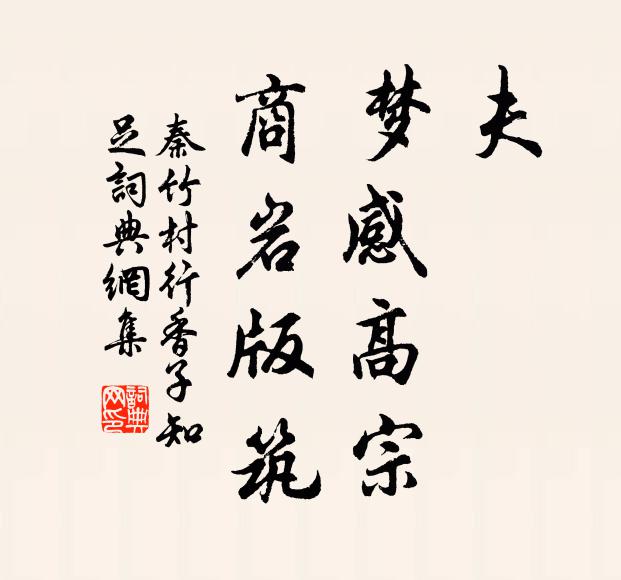 夫
梦感高宗
商岩版筑
秦竹村行香子知
足詞典網集
詞典
网印